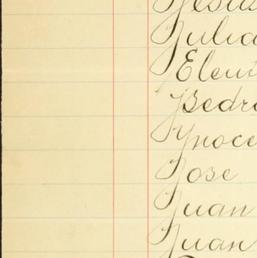 Jesus
Julia
Eleut
Pedro
Ynoce
Jose
Juan
Juan